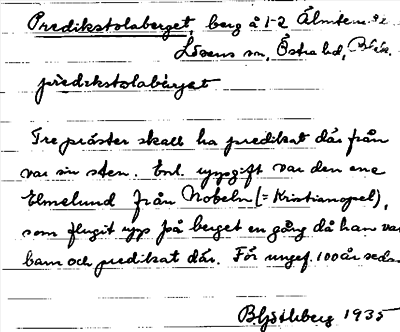 Predikstolaberget, berg å 1-2 Älmtema 32
Lösens sn, Östra hd, Blek.
prèdikstolabärjet
Tre präster skall ha predikat där från
var sin sten. Enl. uppgift var den ene
Elmelund från Nobeln (= Kristianopel),
som flugit upp på berget en gång då han var
barn och predikat där. För ungef. 100 år sedan
1935